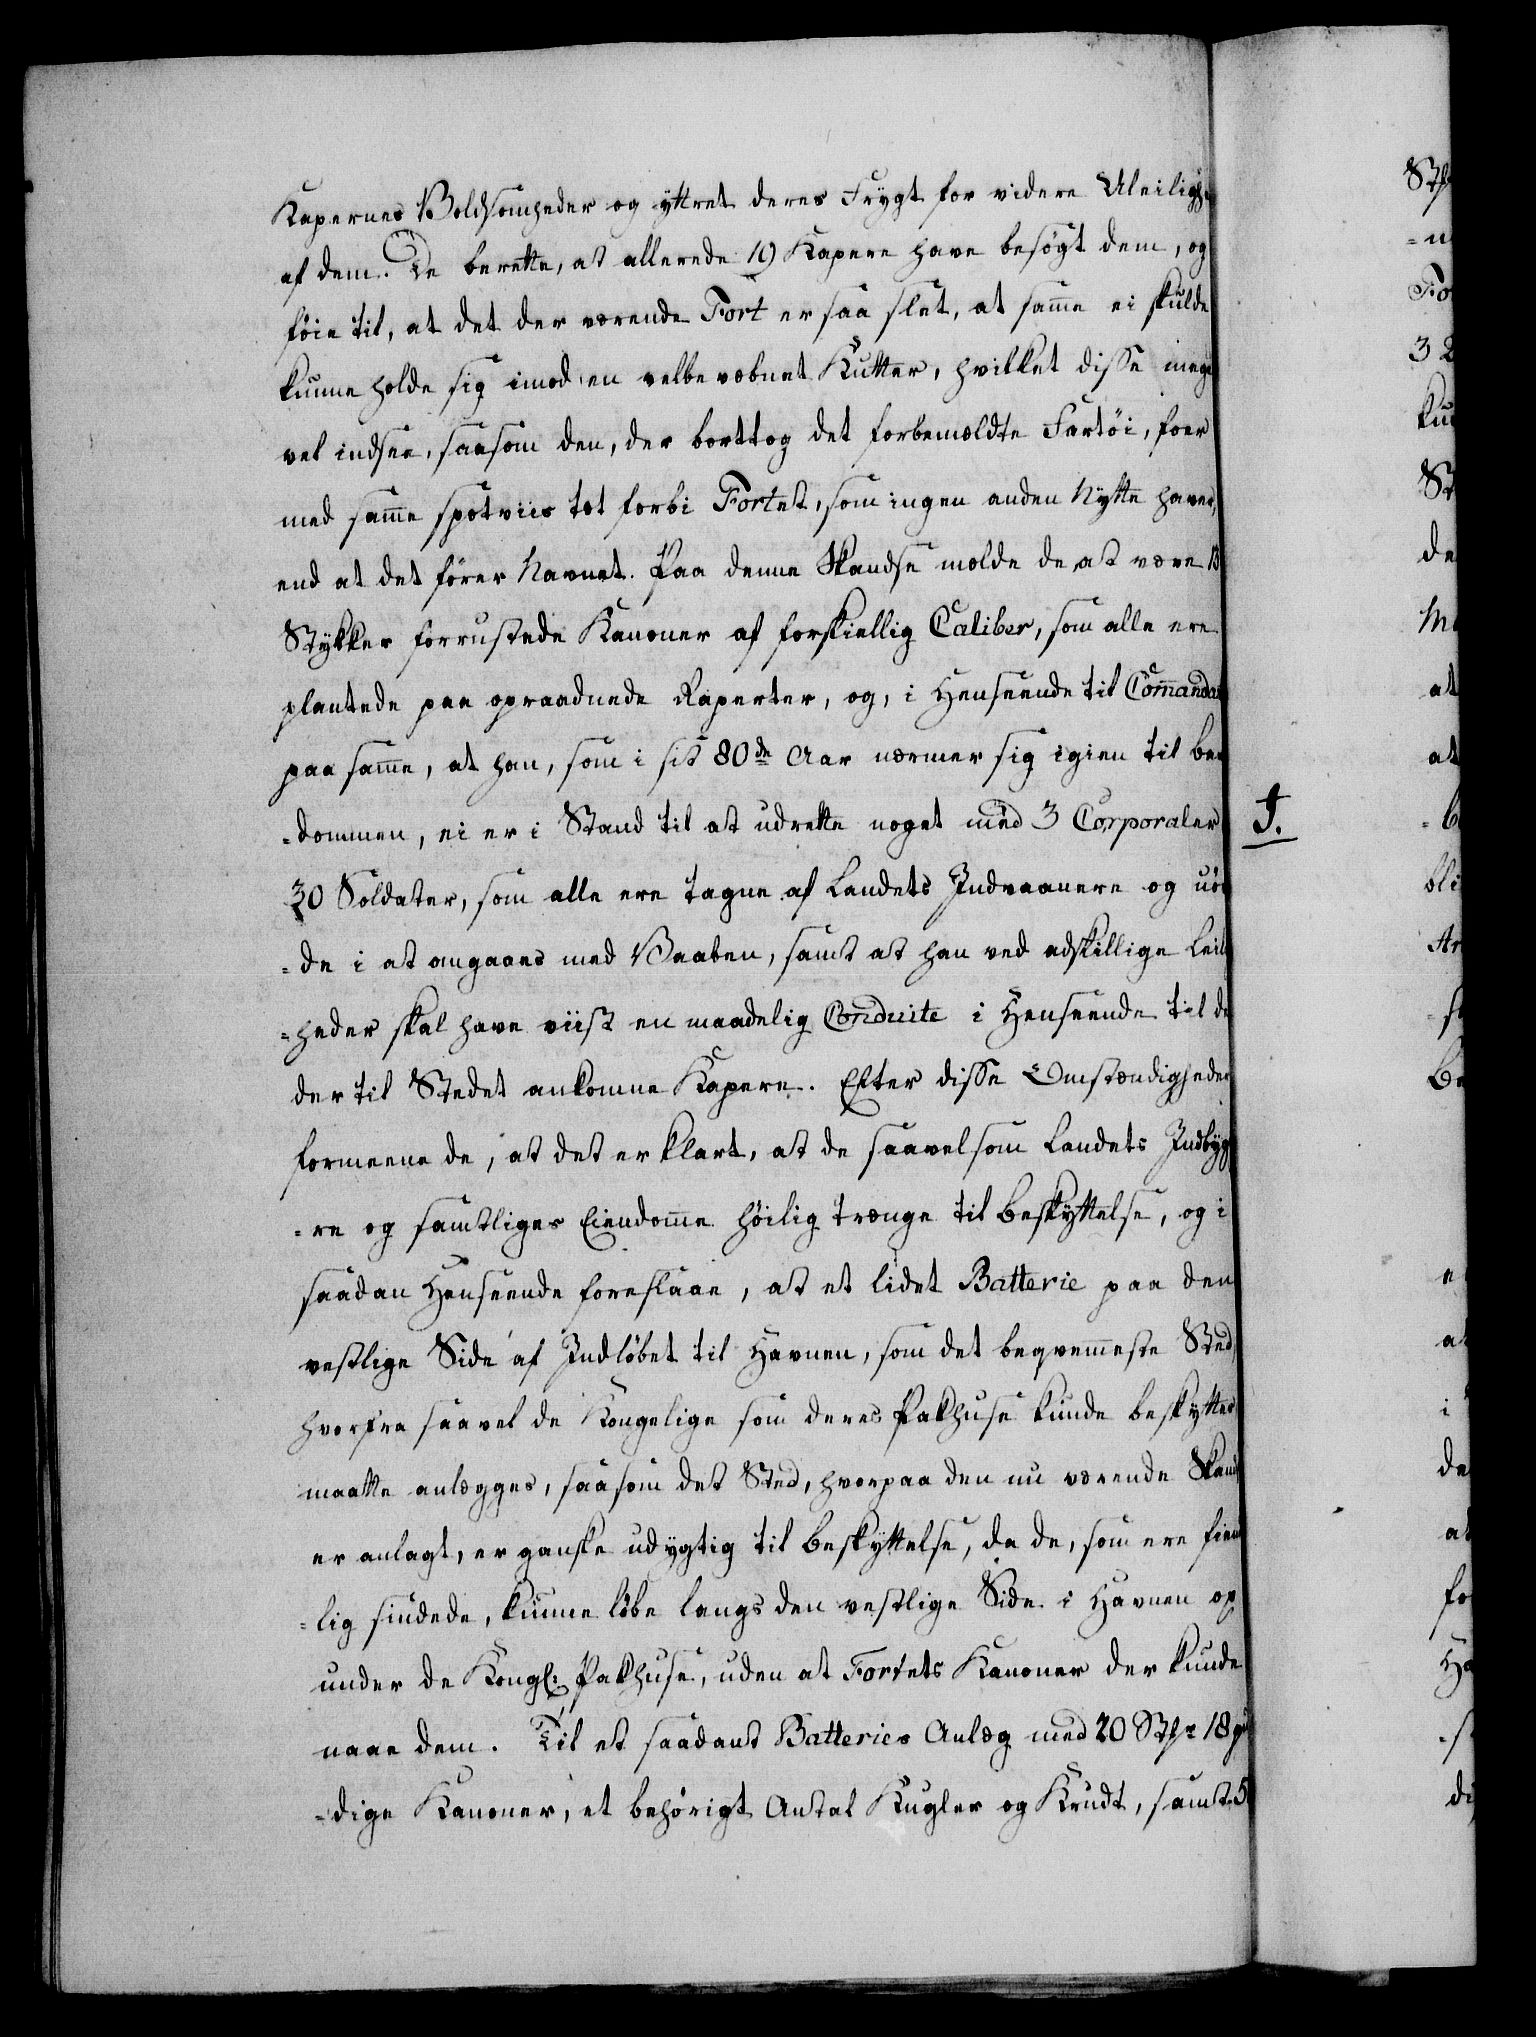 Kapernes Voldsomheder og yttret deres Frygt for videre Uleiligh
af dem. De berette, at allerede 19 Kapere have besøgt dem, og
føie til, at det der værende Fort er saa slet, at sam̄e ei skulde
kunne holde sig imod en velbevæbnet Kutter, hvilket disse meget
vel indsee, saasom den, der borttog det forbemældte Fartøi, foer
med sam̄e spotviis tæt forbi Fortet, som ingen anden Nytte haver,
end at det fører Navnet. Paa denne Skandse mælde de at være 13
Stykker forrustede Kanoner af forskiellig Caliber, som alle ere
plantede paa opraadnede Raperter, og, i Henseende til Com̄andan
paa sam̄e, at han, som i sit 80de Aar nærmer sig igien til bar
-dommen, ei er i Stand til at udrette noget med 3 Corporaler
30 Soldater, som alle ere tagne af Landets Indvaanere og uøv
-de i at omgaaes med Vaaben, samt at han ved adskillige Leili
-heder skal have viist en maadelig Conduite i Henseende til de
der til Stedet ankomne Kapere. Efter disse Omstændigheder
formeene de, at det er klart, at de saavelsom Landets Indbyg
-re og samtliges Eiendom̄e høilig trænge til Beskyttelse, og i
saadan Henseende foreslaae, at et lidet Batterie paa den
vestlige Side af Indløbet til Havnen, som det beqvem̄este Sted,
hvorfra saavel de Kongelige som deres Pakhuse kunde beskyttes
maatte anlægges, saasom det Sted, hvorpaa den nu værende Skand
er anlagt, er ganske udygtig til Beskyttelse, da de, som ere fiend
-lig sindede, kunne løbe langs den vestlige Side i Havnen op
under de Kongl: Pakhuse, uden at Fortets Kanoner der kunde
naae dem. Til et saadant Batteries Anlæg med 20 Stkr 18 p
-dige Kanoner, et behørigt Antal Kugler og Krudt, samt 5